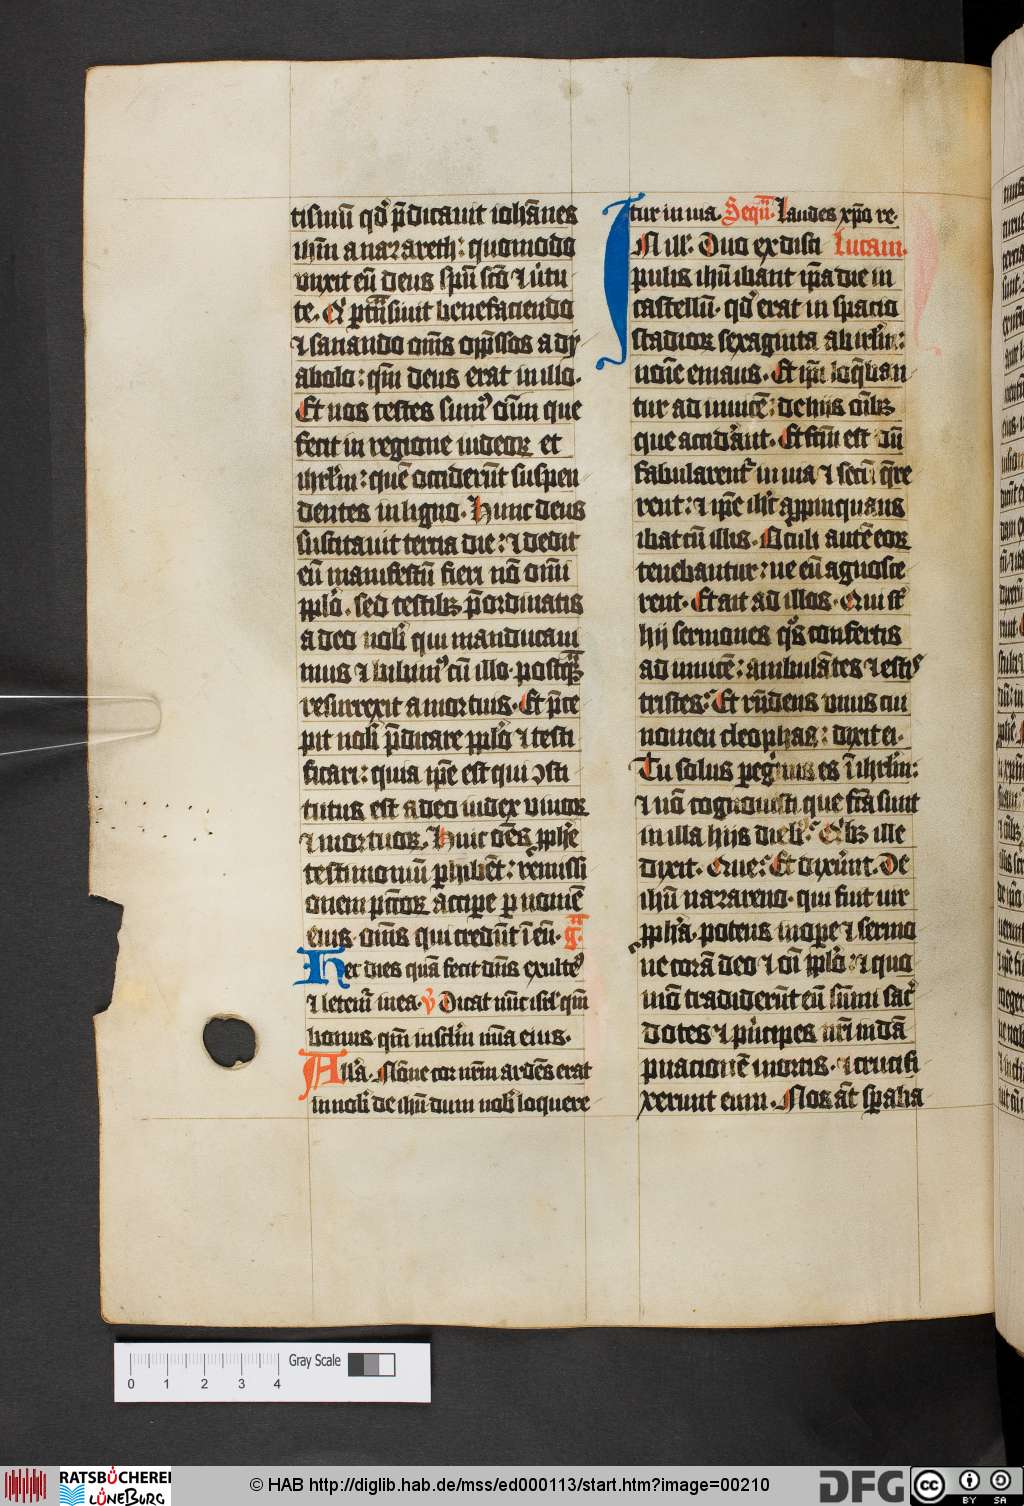 tismū qd̾ p̄dicauit iohānes
ihm̄ a nazareth: quomodo
vnxit eū deus spū scō ⁊ v̾tu
te. Q̾ ptn̄siuit benefaciendo
⁊ sanando om̄s opp̄ssos a dy
abolo: qm̄ deus erat in illo.
Et nos testes sumꝰ oīm que
fecit in regione iudeoꝝ et
ihrl̄m: quē occiderūt suspen
dentes in ligno. Hunc deus
suscitauit tercia die: ⁊ dedit
eū manifestū fieri nō omī
ppl̾o. sed testibꝫ p̄ordinatis
a deo nob̾ qui manducaui
mus ⁊ bibimꝰ cū illo. postqꝫ
resurrexit a mortuis. Et p̄ce
pit nob̾ p̄dicare ppl̾o ⁊ testi
ficari: quia ip̄e est qui ꝯsti
tutus est a deo iudex viuoꝝ
⁊ mortuoꝝ. Huic oēs pph̾e
testimoniū phibēt: r̾missi
onem pctōꝝ accipe p nomē
eius. om̄s qui credūt ī eū. g̾
Hec dies quā fecit dn̄s exulteꝰ
⁊ letem̾ in ea. v̾ Dicat nūc isrl̾ qm̄
bonus. qm̄ in sclm̄ mīa eius.
All̾a. Nōne cor nrm̄ ardēs erat
in nob̾ de ihū dum nob̾ loquere
tur in uia. Sequ̾. Laudes xp̄o re.
IN ill̾. Duo ex disci Lucam.
pulis ihū ibant ip̄a die in
castellū. qd̾ erat in spacio
stadioꝝ sexaginta ab ihrl̄m:
noīe emaus. Et ip̄i loq̄ban
tur ad inuicē: de hijs oībꝫ
que acid̾ant. Et fcm̄ est dū
fabularent̾ in uia ⁊ secū q̄re
rent: ⁊ ip̄e ihc̾ appinquans
ibat cū illis. Oculi autē eoꝝ
tenebantur: ne eū agnosce
rent. Et ait ad illos. Qui st̾
hij sermones qs̾ confertis
ad inuicē: ambulātes ⁊ estis
tristes? Et rn̄dens vnus cui
nomen cleophas: dixit ei.
Tu solus pegrinus es ī ihrl̄m:
⁊ nō cognouisti que fcā sunt
in illa hijs dieb̾? Q̾bꝫ ille
dixit. Que? Et dixūnt. De
ihū nazareno. qui fuit uir
pph̾a. potens in ope ⁊ sermo
ne corā deo ⁊ oī ppl̾o: ⁊ quo
mō tradiderūt eū sūmi sac̾
dotes ⁊ pn̾cipes nr̄i in dā
pnacionē mortis. ⁊ crucifi
xerunt eum. Nos āt spaba
0 1 2 3 4 Gray Scale
RATSBÜCHEREI LÜNEBURG
© HAB http://diglib.hab.de/mss/ed000113/start.htm?image=00210
DFG
cc BY SA